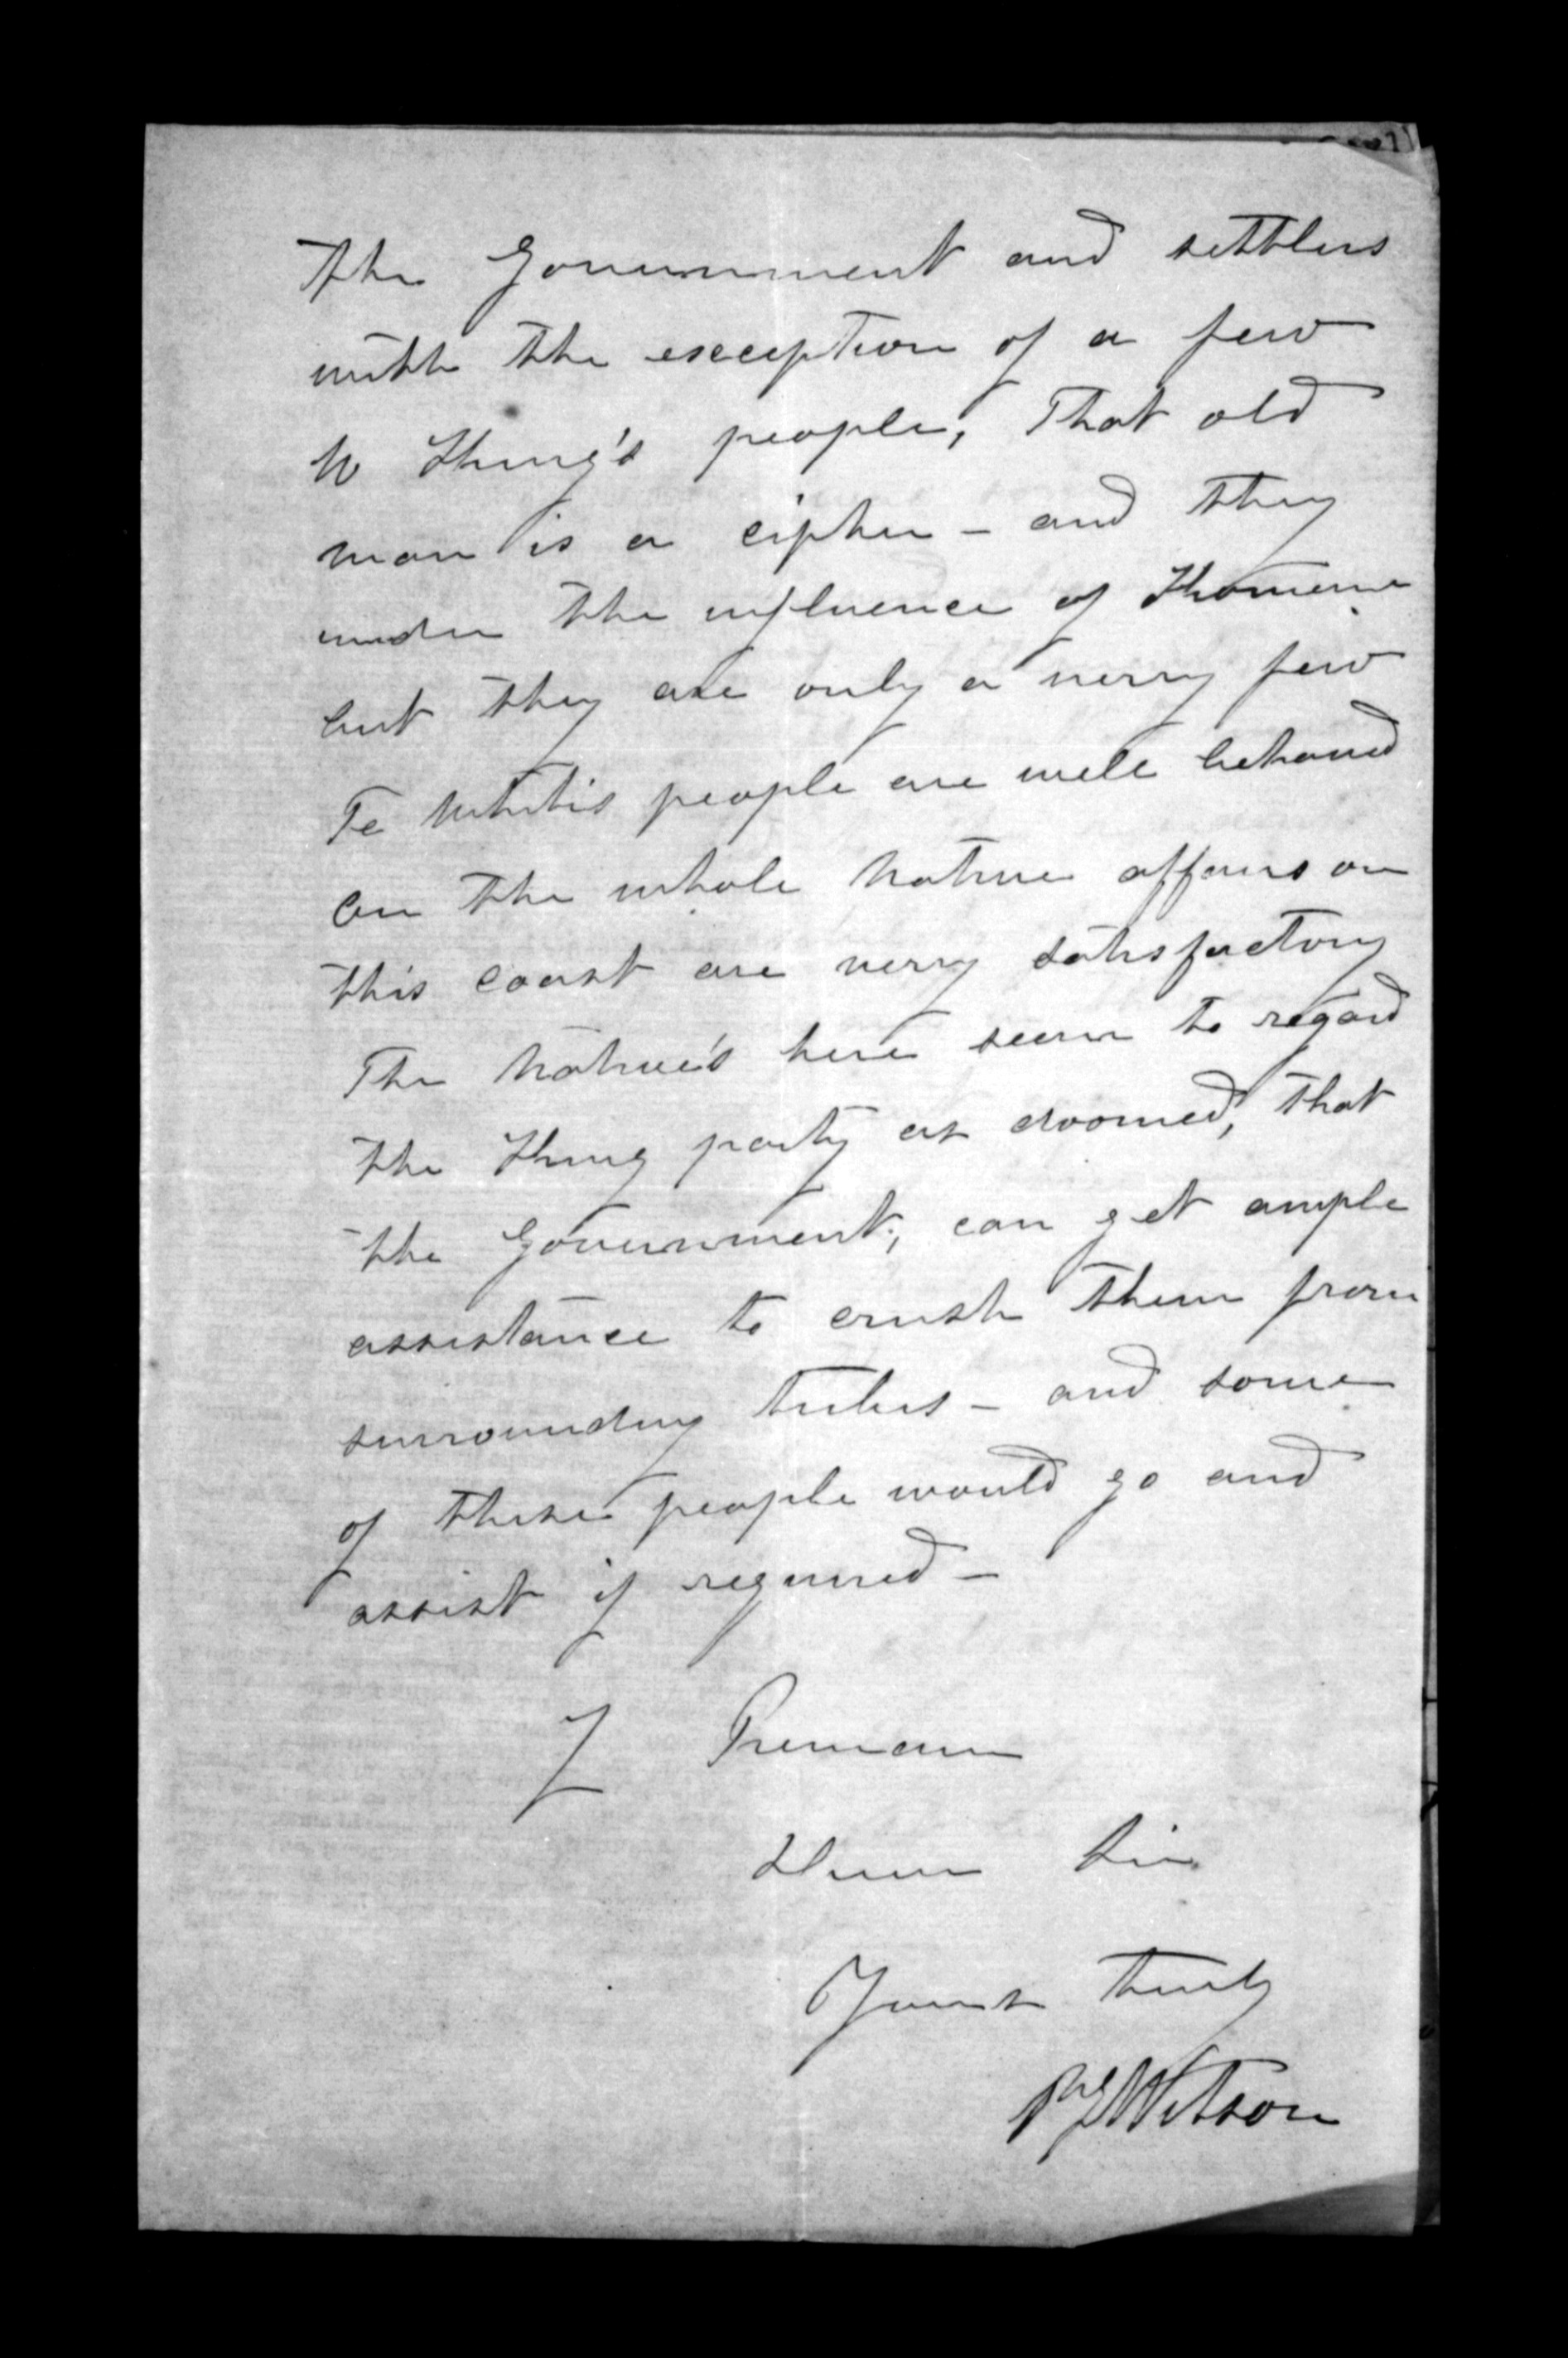 the Government and settlers
with the exception of a few
W King's people, That old
man is a cipher - and they
under the influence of
but they are only a verry few
Te Whiti's people are well behaved
On the whole Native affairs on
this coast are verry satisfactory
The Native's here seem to regard
the King party as doomed, that
the Government, can get ample
assistance to crush them from
surrounding tribes - and some
of these people would go and
assist if required -
I Remain
Dear Sir
Yours truly
Watson